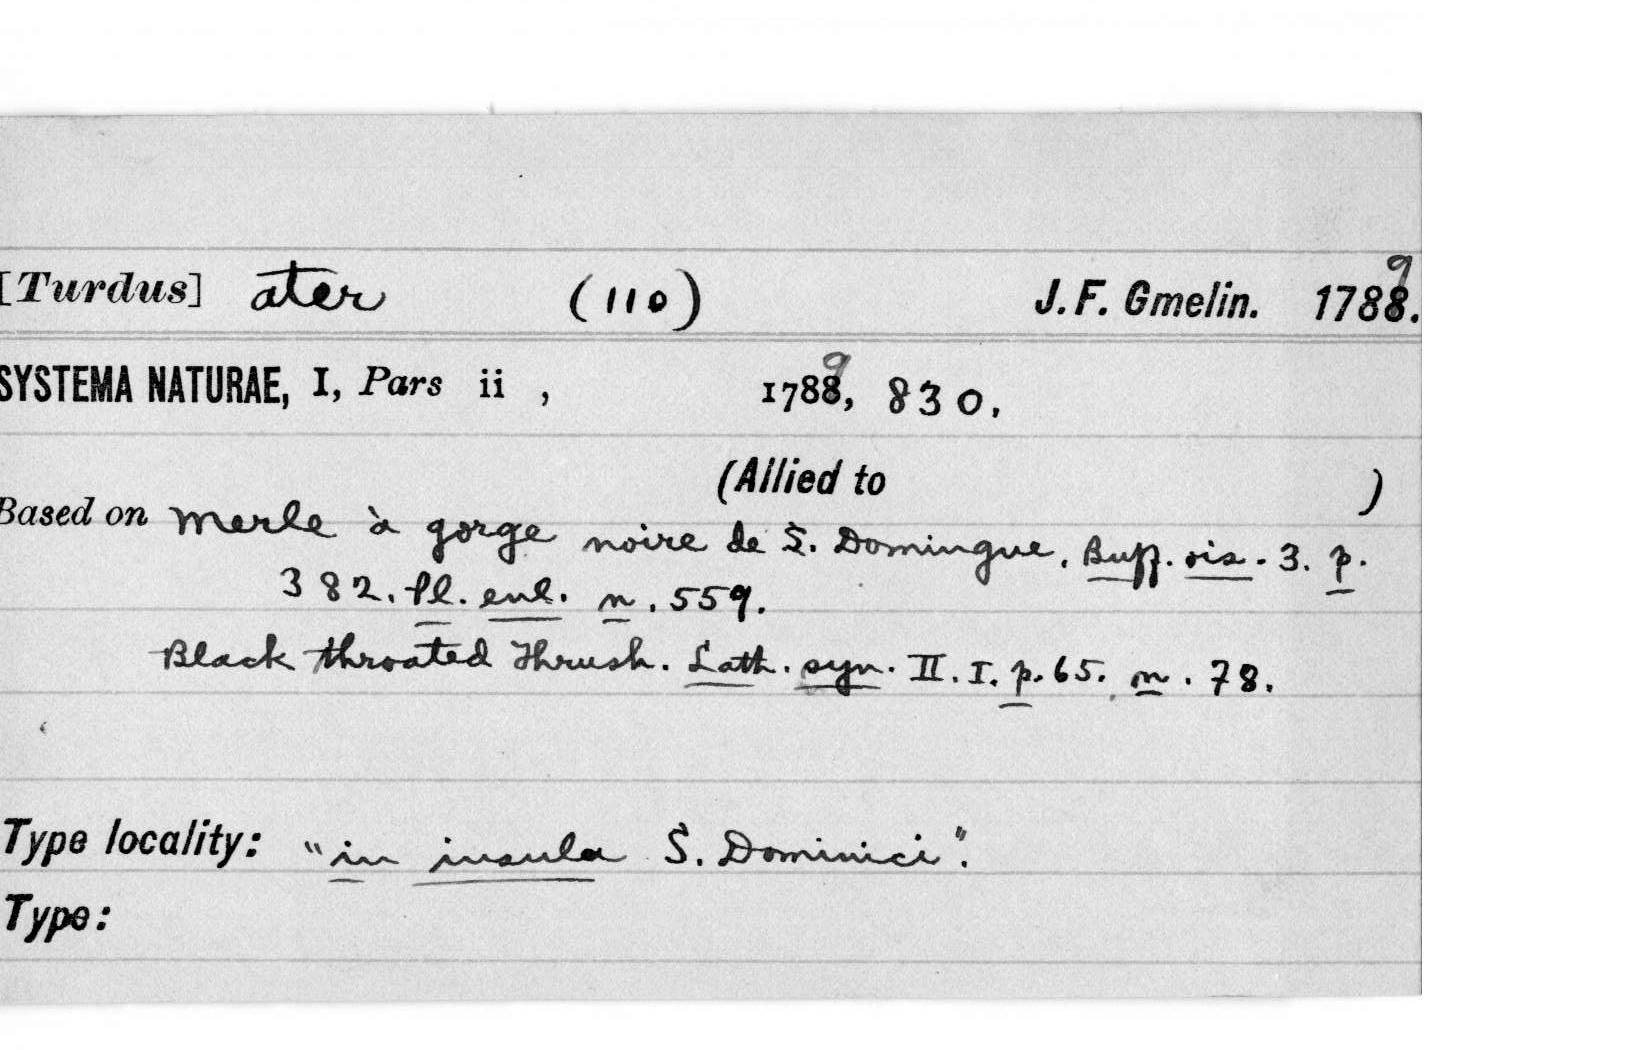 [Turdus] ater (110) J. F. Gmelin. 1788. 9
SYSTEMA NATURAE, I, Pars ii , 1788, 9 830.
(Allied to )
Based on Merle à gorge noire de S. Domingue. Buff. ois. 3. p.
382. pl. enl. n. 559.
Black throated Thrush. Lath. syn. II. I. p. 65. n. 78.
Type locality: "in insula S. Dominici".
Type: